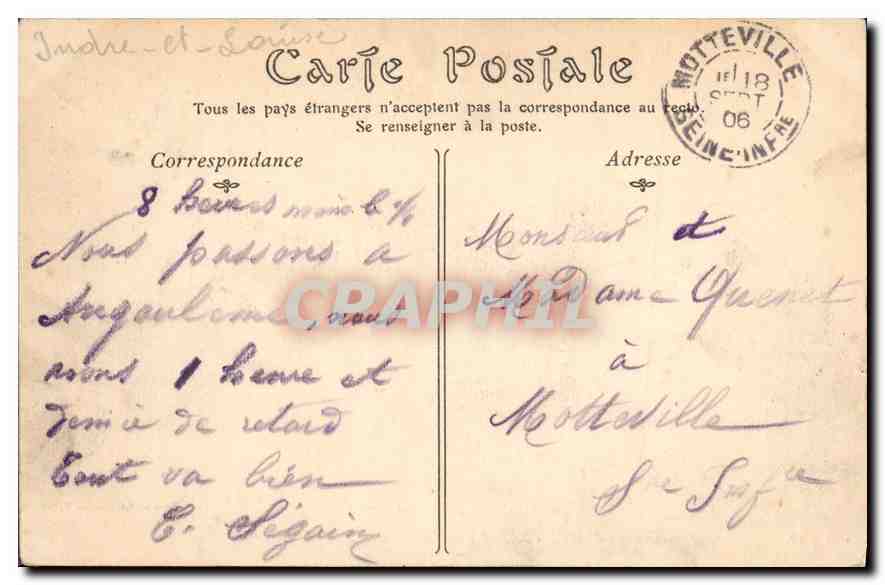 Indre-et-Loire
Carte Postale
Tous les pays étrangers n'acceptent pas la correspondance au recto.
Se renseigner à la poste.
MOTTEVILLE
18
SEPT
06
SEINE-INFRE
Correspondance
8 heures moins le ¼
Nous passons a
Angoulême, nous
avons 1 heure et
demie de retard
Tout va bien
Adresse
Monsieur et
Madame Quenet
à
Motteville
Sne Infre
CRAPHIL